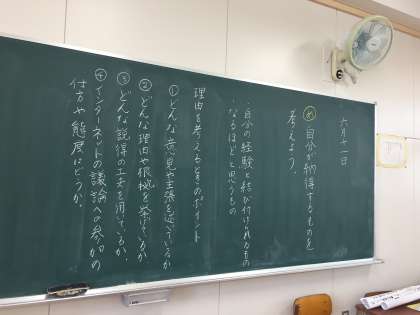 六月十一日
め 自分が納得するものを
考えよう。
・自分の経験と結び付けられるもの
・なるほどと思うもの
理由を考えるときのポイント
①どんな意見や主張を述べているか
②どんな理由や根拠を挙げているか
③どんな説得の工夫を用いているか。
④インターネットの議論への参加の
仕方や態度はどうか。